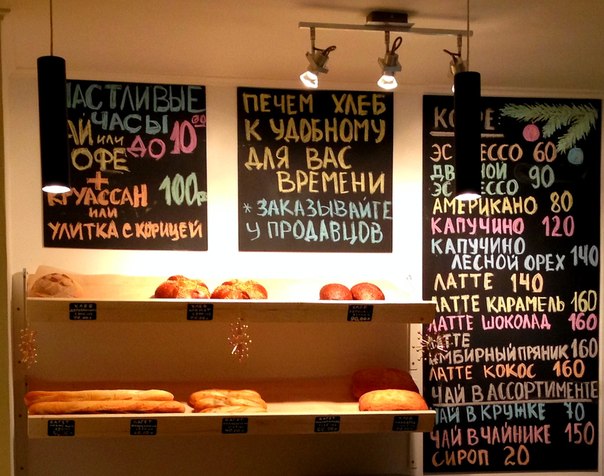 ЧАСТЛИВЫЕ
ЧАСЫ
ЧАЙ или ДО 10 00
КОФЕ
+
КРУАССАН 100р
ИЛИ
УЛИТКА С КОРИЦЕЙ
ПЕЧЕМ ХЛЕБ
К УДОБНОМУ
ДЛЯ ВАС
ВРЕМЕНИ
* ЗАКАЗЫВАЙТЕ
У ПРОДАВЦОВ
КОФЕ
ЭСПРЕССО 60
ДВОЙНОЙ
ЭСПРЕССО 90
АМЕРИКАНО 80
КАПУЧИНО 120
КАПУЧИНО
ЛЕСНОЙ ОРЕХ 140
ЛАТТЕ 140
ЛАТТЕ КАРАМЕЛЬ 160
ЛАТТЕ ШОКОЛАД 160
ЛАТТЕ
ИМБИРНЫЙ ПРЯНИК 160
ЛАТТЕ КОКОС 160
ЧАЙ В АССОРТИМЕНТЕ
ЧАЙ В КРУЖКЕ 70
ЧАЙ В ЧАЙНИКЕ 150
СИРОП 20